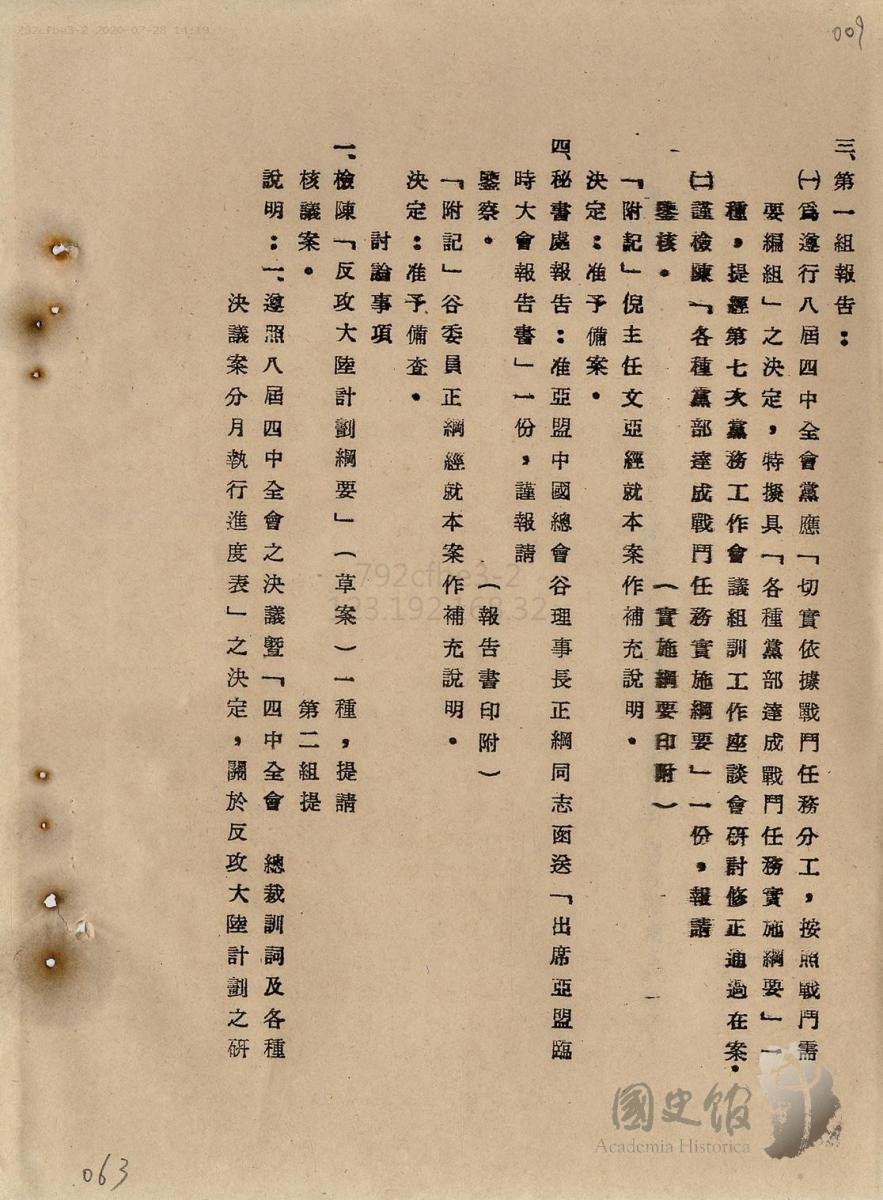 009
三、第一組報告：
㈠為遵行八屆四中全會黨應「切實依據戰鬥任務分工，按照戰鬥需
要編組」之決定，特擬具「各種黨部達成戰鬥任務實施綱要」一
種，提經第七次黨務工作會議組訓工作座談會研討修正通過在案。
㈡謹檢陳「各種黨部達成戰鬥任務實施綱要」一份，報請
鑒核。（實施綱要印附）
「附記」倪主任文亞經就本案作補充說明。
決定：准予備案。
四、秘書處報告：准亞盟中國總會谷理事長正綱同志函送「出席亞盟臨
時大會報告書」一份，謹報請
鑒察。（報告書印附）
「附記」谷委員正綱經就本案作補充說明。
決定：准予備查。
討論事項
一、檢陳「反攻大陸計劃綱要」（草案）一種，提請
核議案。 第二組提
說明：一、遵照八屆四中全會之決議暨「四中全會 總裁訓詞及各種
決議案分月執行進度表」之決定，關於反攻大陸計劃之研
063
792cfbe3-2 2020-07-28 14:19
792cfbe3-2
國史館
Academia Historica